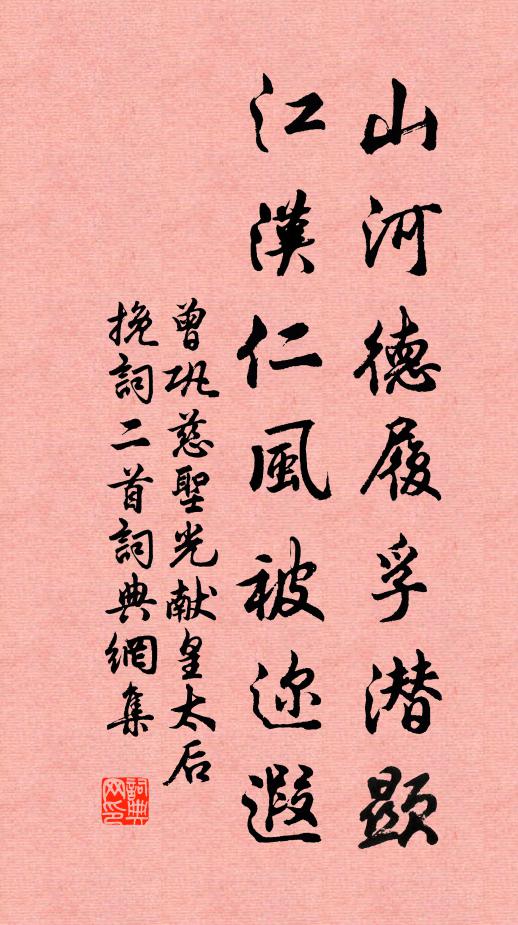 山河德履孚潜顯
江漢仁風被迩遐
曾巩慈聖光献皇太后
挽詞二首詞典網集
詞典网印